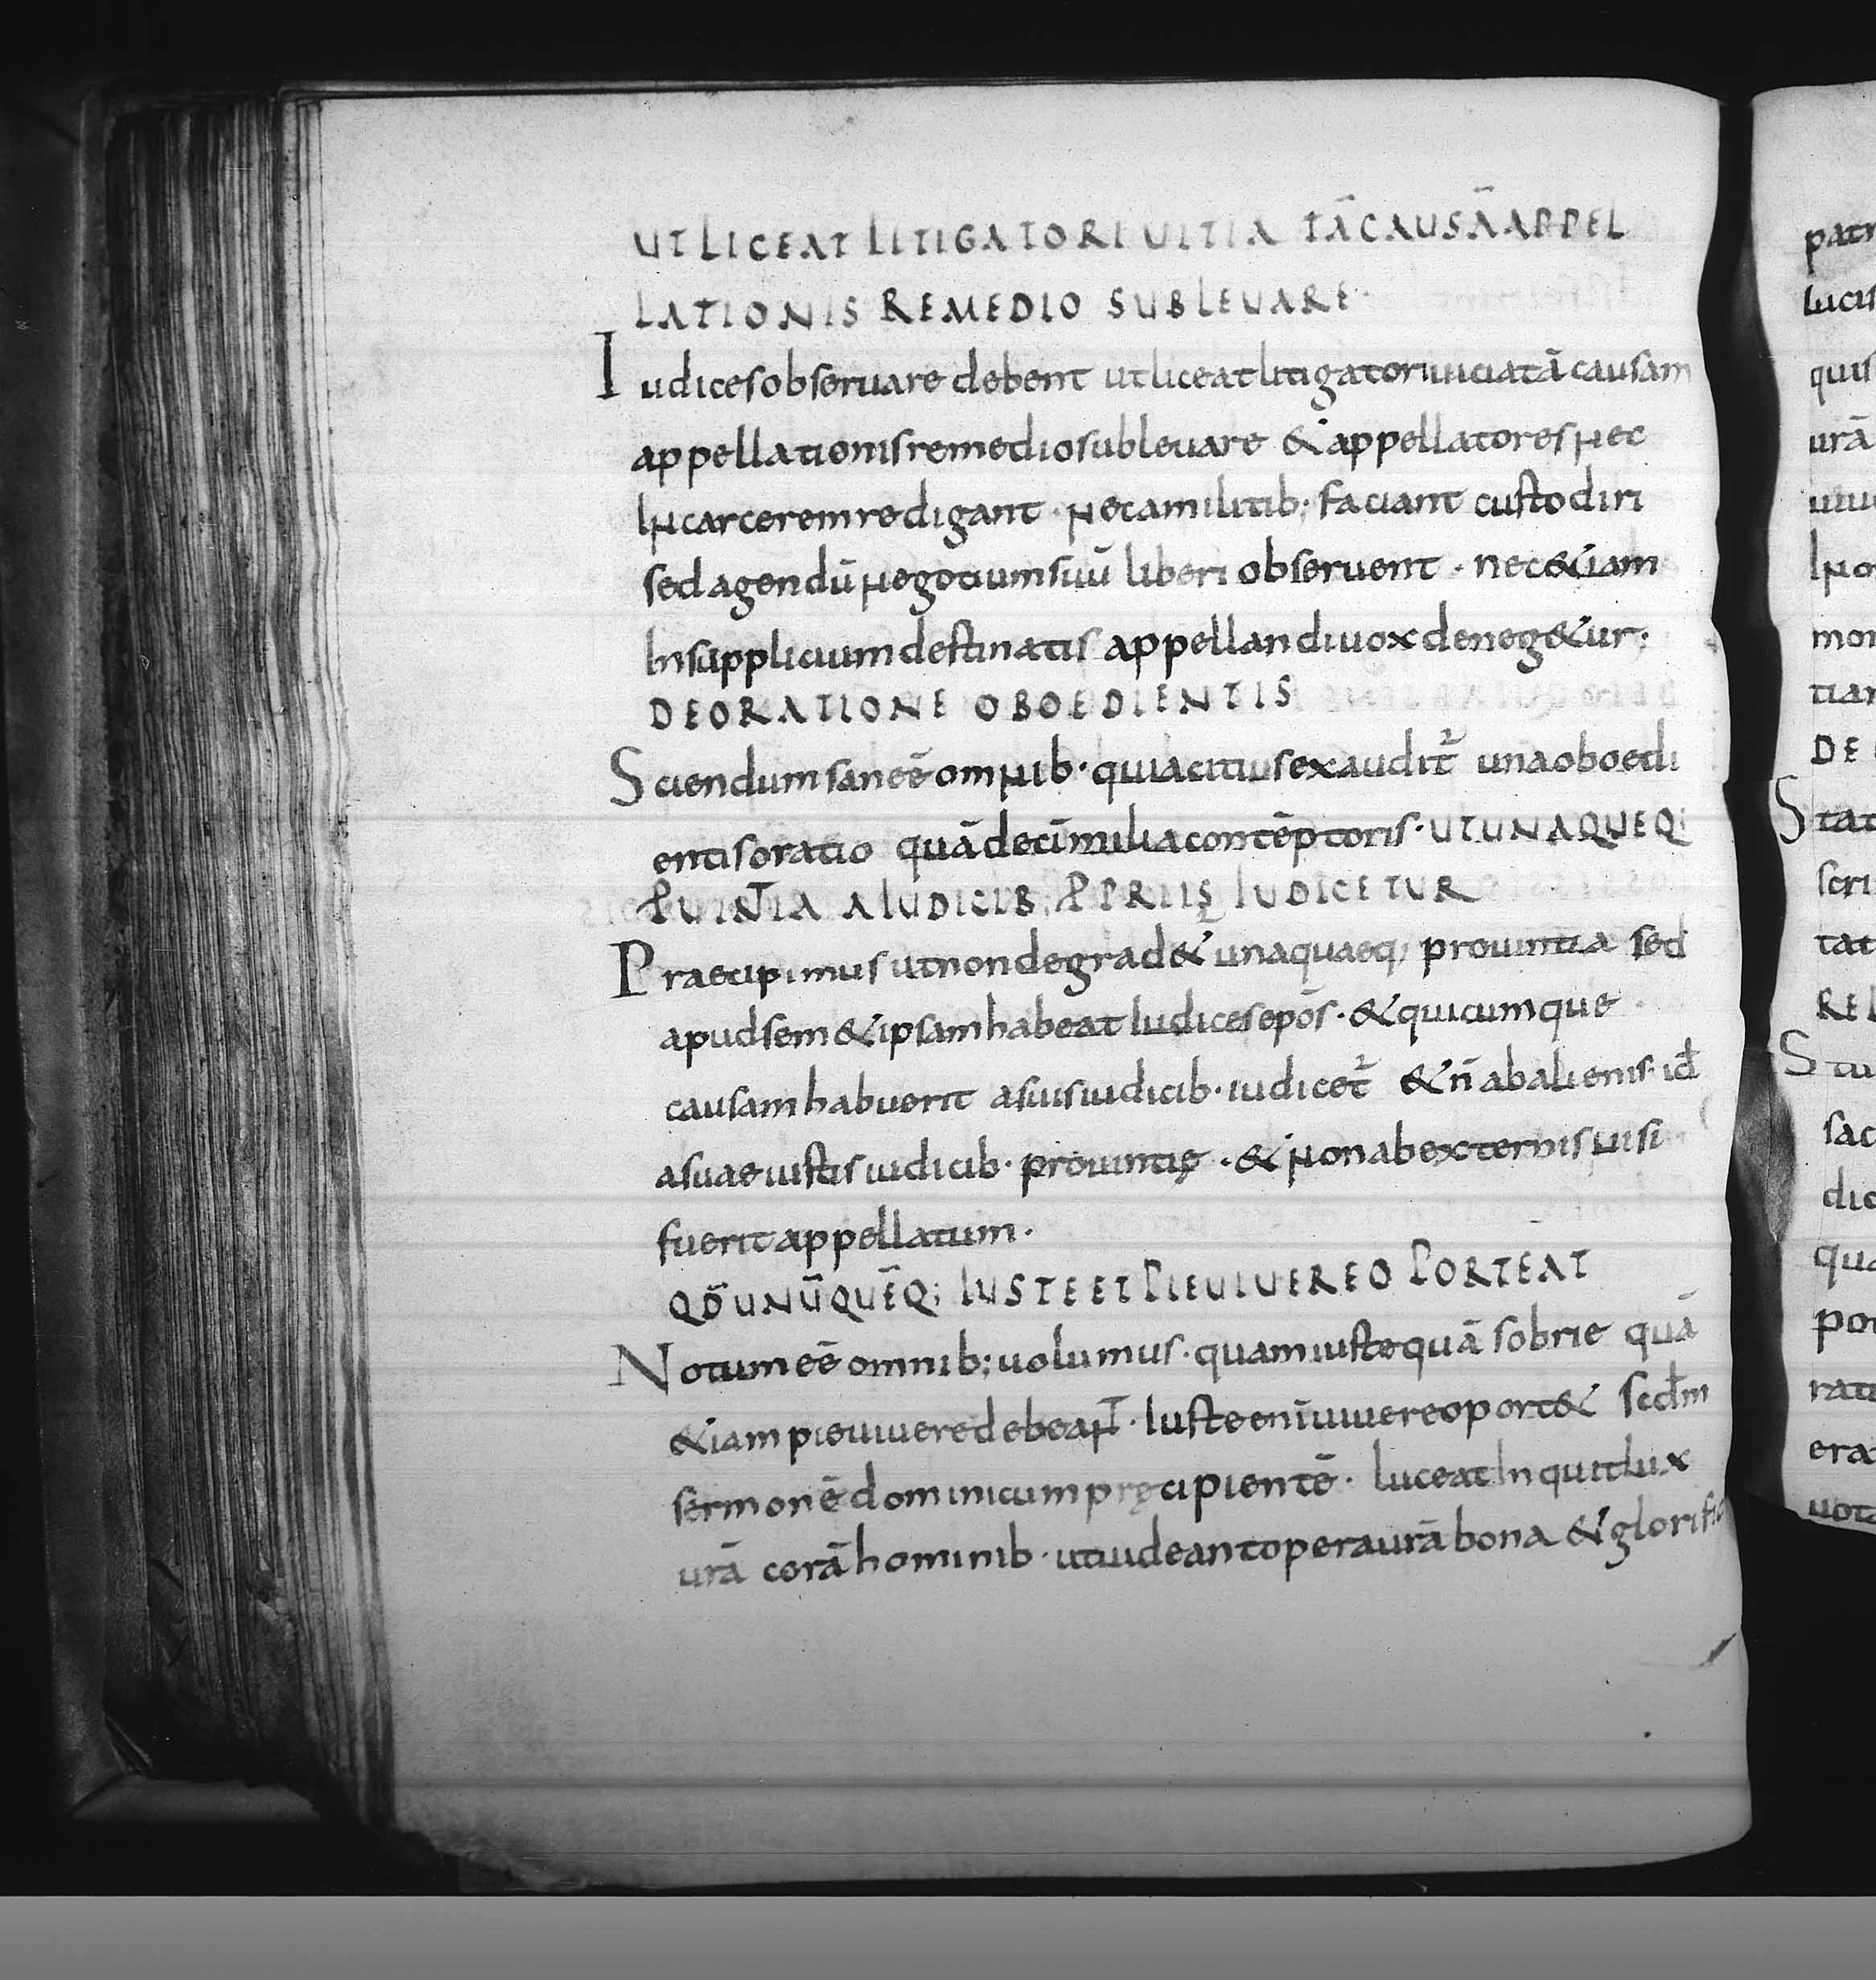 UT LICEAT LITIGATORI UITIATĀ CAUSĀ APPEL
LATIONIS REMEDIO SUBLEUARE·
Iudices obseruare debent ut liceat litigatori uiciatā causam
appellationis remedio subleuare & appellatores nec
In carcerem redigant · nec a militib; faciant custodiri
sed agendū negotium suū liberi obseruent · nec &iam
In supplicium destinatis appellandi uox deneg&ur·
DE ORATIONE OBOEDIENTIS
Sciendum sane eē omnib· quia citius exaudit̄ una oboedi
entis oratio quā decī milia contēptoris· UT UNAQUEQ;
PUINTIA A IUDICIB; PPRIIS IUDICETUR
Praecipimus ut non degrad& unaquaeq; prouintia sed
apud sem&ipsam habeat Iudices epōs· & quicumque
causam habuerit a suis iudicib· iudicet̄ & n̄ ab alienis· id̄
a suae iustis iudicib· prouintię · & non ab externis nisi
fuerit appellatum·
QD̄ UNŪQUĒQ; IUSTE ET PIE UIUERE OPORTEAT
Notum eē omnib; uolumus· quam iuste quā sobrie quā
&iam pie uiuere debeant· Iuste enī uiuere oport& sec̄dm
sermonē dominicum pręcipientē· luceat Inquit lux
ur̄ā corā hominib· ut uideant opera ur̄ā bona & glorific
patr
lucis
quis
ur̄ā
mor
tiar
DE
Stat
scri
tat
REL
Stu
sac
dic
qua
por
rati
era
uota